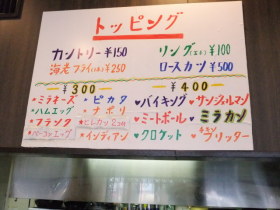 トッピング
カントリー ¥150 リング(エキ) ¥100
海老フライ(1本) ¥250 ロースカツ ¥500
¥300 ¥400
ミラネーズ ピカタ ♥バイキング ♥サンジェルマン
ハムエッグ ナポリ ♥ミートボール ♥ミラカン
フランク ヒレカツ2ヶ ♥クロケット ♥チキンブリッター
ベーコンエッグ インディアン